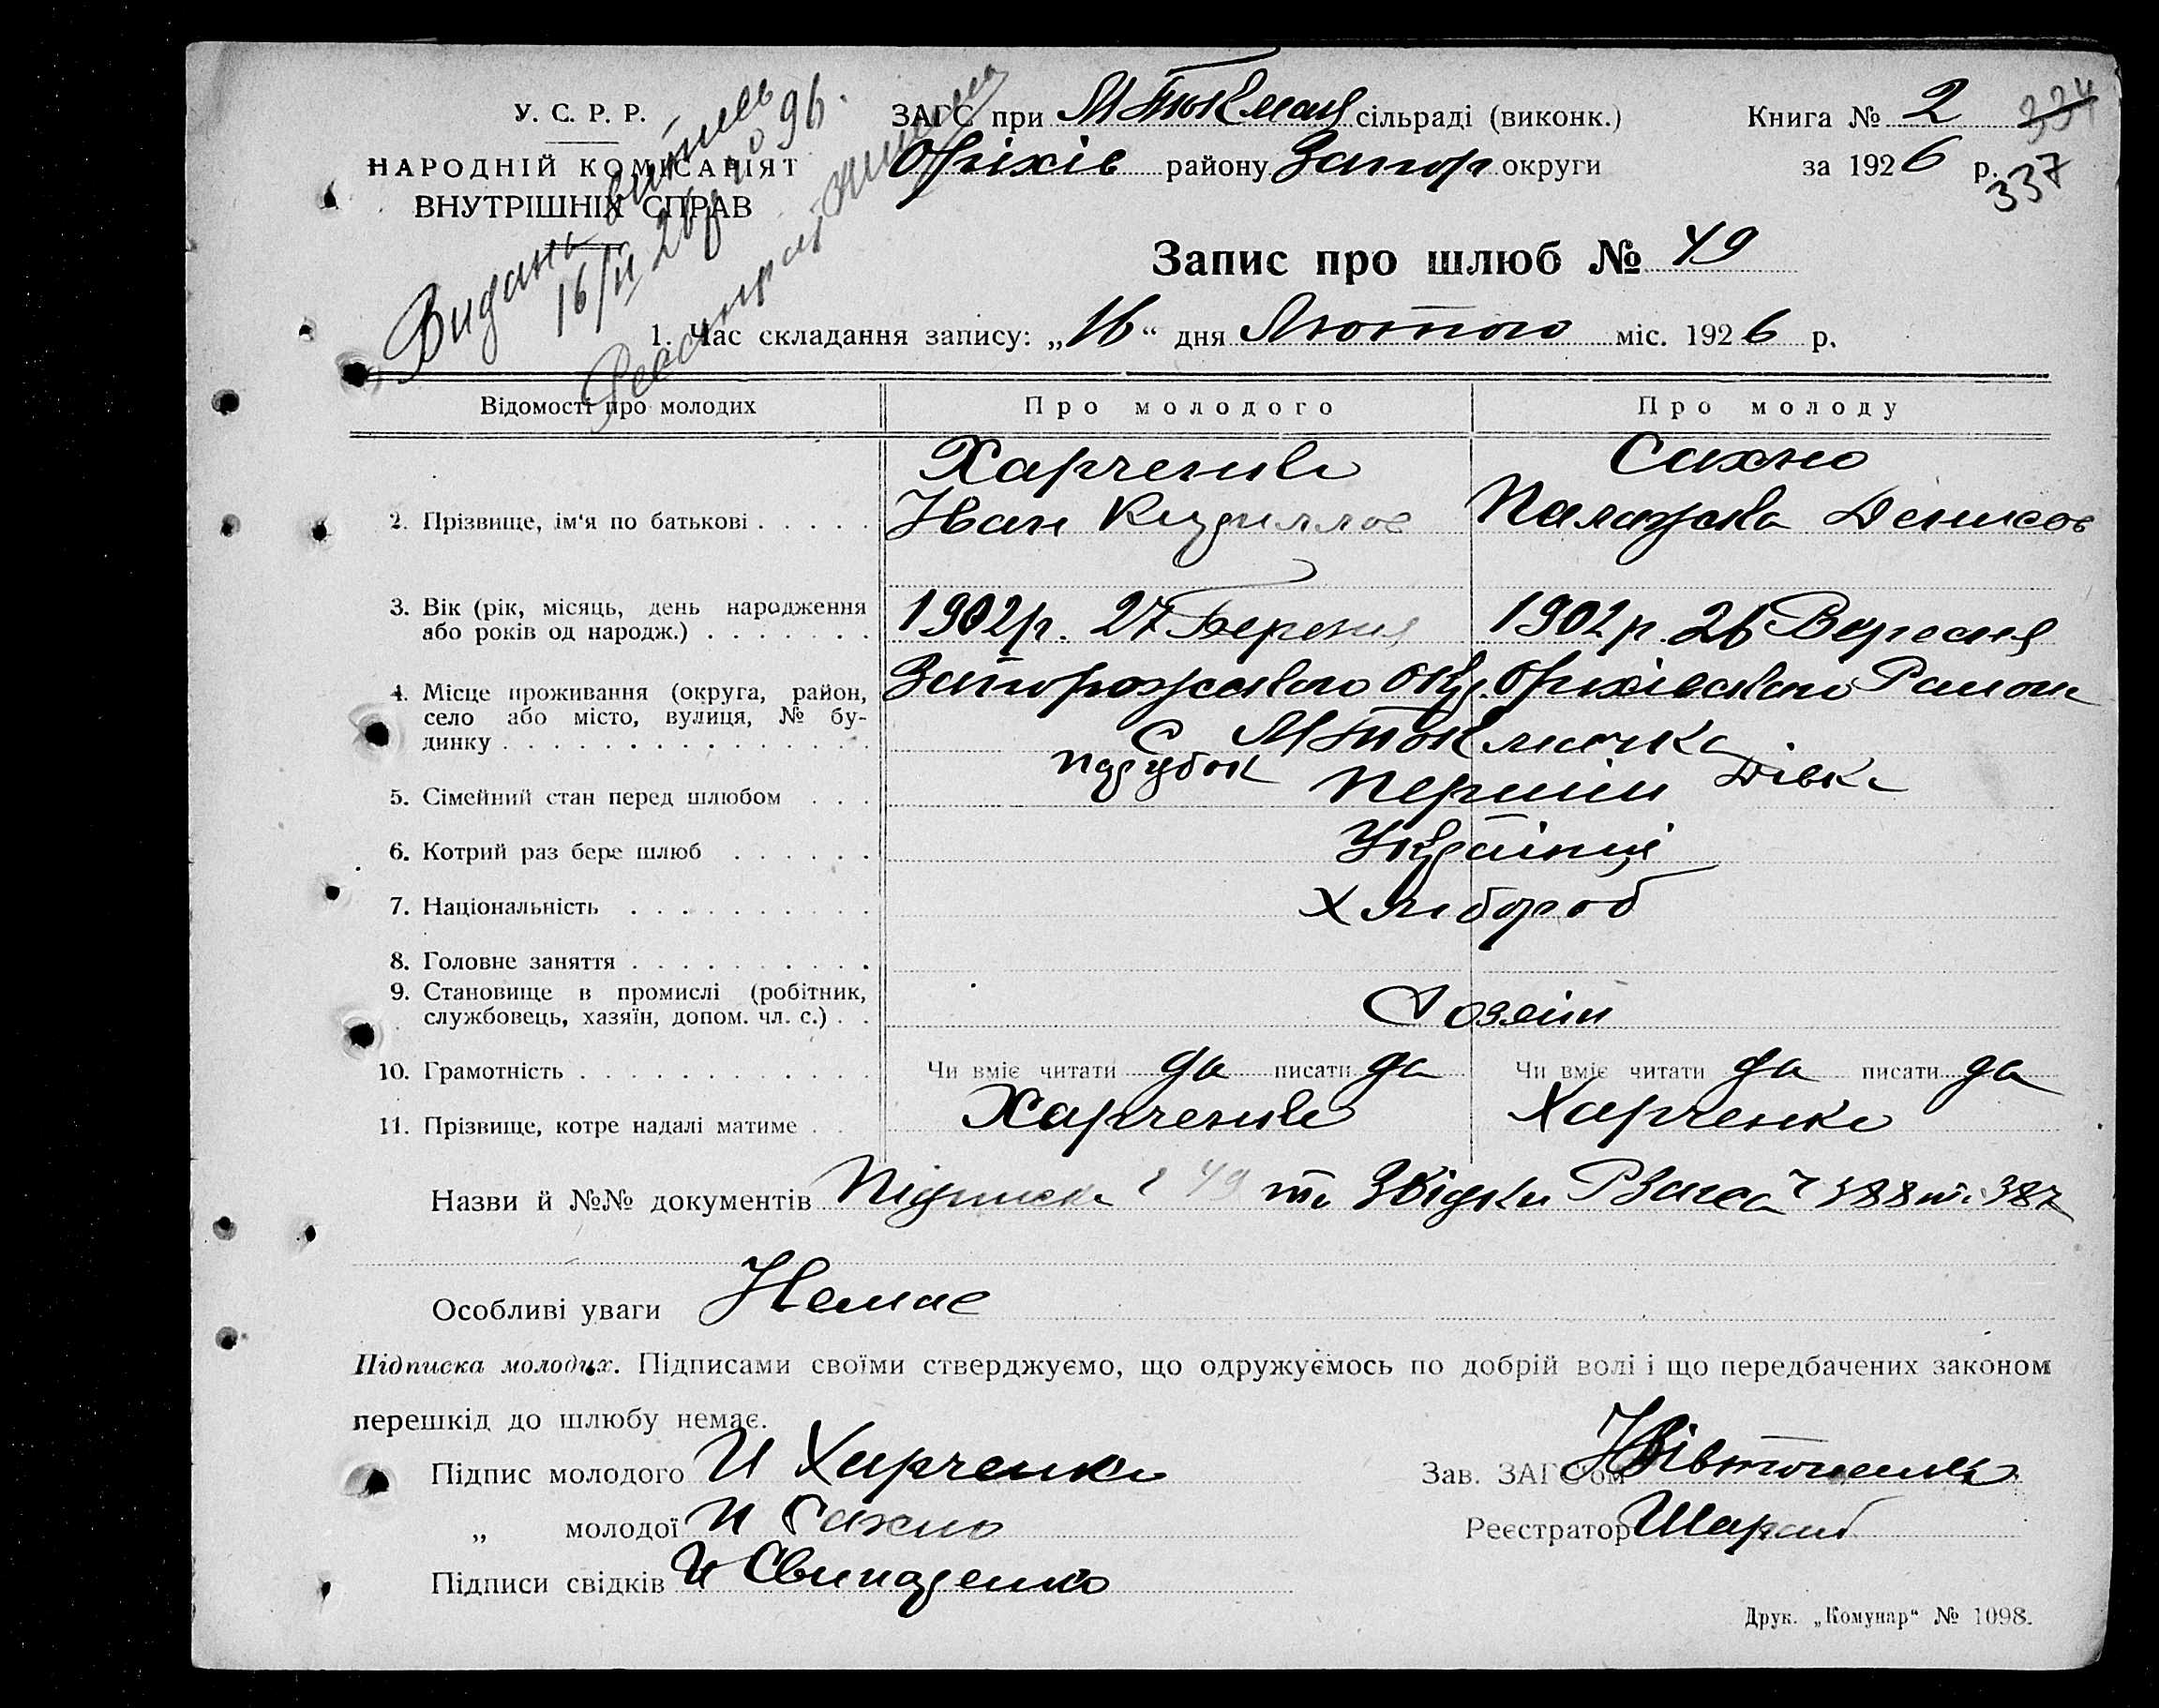 У. С. Р. Р.
НАРОДНІЙ КОМІСАРІЯТ
ВНУТРІШНІХ СПРАВ
Видань витись
16/II 26р. № 96.
ЗАГС при М Токмац сільраді (виконк.)
Оріхів району Запор округи
Книга № 2 334
за 1926 р.
337
Запис про шлюб № 49
1. Час складання запису: „16“ дня Лютого міс. 1926 р.
Відомості про молодих Про молодого Про молоду
Харченко Сахно
2. Прізвище, ім'я по батькові . . . . . Иван Кириллов Палажка Денисов
3. Вік (рік, місяць, день народження
або років од народж.) . . . . . . . 1902р. 27 Березня 1902 р. 26 Вересня
4. Місце проживання (округа, район,
село або місто, вулиця, № бу-
динку . . . . . . . . . . . . . . .
Запорожского окр. Оріхівского Району
С МТокмачка
5. Сімейний стан перед шлюбом . . . парубок Дівка
Перший
6. Котрий раз бере шлюб . . . . . . Українці
7. Національність . . . . . . . . . . Хлибороб
8. Головне заняття . . . . . . . . . .
9. Становище в промислі (робітник,
службовець, хазяїн, допом. чл. с.) . . Хозяїн
10. Грамотність . . . . . . . . . . . . Чи вміє читати да писати да Чи вміє читати да писати да
11. Прізвище, котре надалі матиме . . Харченко Харченко
Назви й №№ документів Підписка ч 49 та Звідки РЗагса ч 388 та 387
Особливі уваги Немає
Підписка молодих. Підписами своїми стверджуємо, що одружуємось по добрій волі і що передбачених законом
перешкід до шлюбу немає.
Підпис молодого И Харченко
Зав. ЗАГС'ом
„ молодої П Сахно
Реєстратор
Підписи свідків И
Друк. „Комунар“ № 1098.